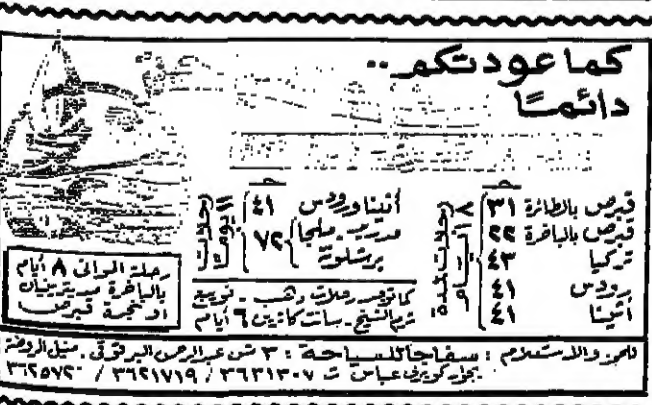 كما عودتكم ..
دائمًا
رحلات لمدة ٨ أيام
قبرص بالطائرة ٣١
قبرص بالباخرة ٢٢
تركيا ٤٣
رودس ٤١
أثينا ٤١
رحلات ١١ يومًا
أثينا ورودس ٤١
مدريد - ملجا
برشلونة ٧٢
كما توجد رحلات دهب - نويبع
شرم الشيخ - سانت كاترين ٦ أيام
رحلة الموانى ٨ أيام
بالباخرة مديترينيان
او نجمة قبرص
للحجز والاستعلام : سفاجا للسياحة : ٣ ش عبدالرحمن البرقوقى - منيل الروضة
بجوار كوبرى عباس ت ٣٦٣١٣٠٧ / ٣٦٢١٧١٩ / ٣٦٢٥٧٢٠